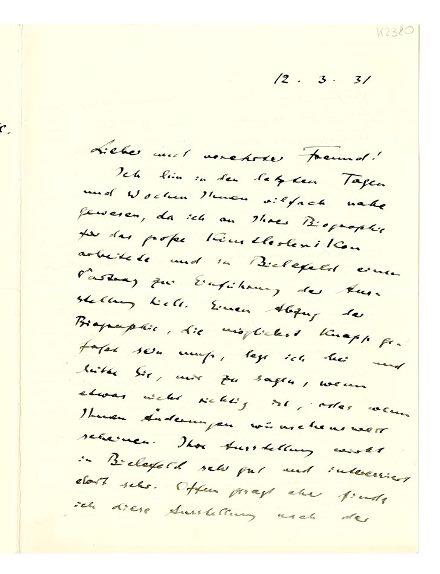 K2380
12. 3. 31
Lieber und verehrter Freund!
Ich bin in den letzten Tagen
und Wochen Ihnen vielfach nahe
gewesen, da ich an Ihrer Biographie
für das große Künstlerlexikon
arbeitete und in Bielefeld einen
Vortrag zur Einführung der Aus-
stellung hielt. Einen Abzug der
Biographie, die möglichst knapp ge-
faßt sein muß, lege ich bei und
bitte Sie, mir zu sagen, wenn
etwas nicht richtig ist, oder wenn
Ihnen Änderungen wünschenswert
scheinen. Ihre Ausstellung wirkt
in Bielefeld sehr gut und interessiert
dort sehr. Offen gesagt aber finde
ich diese Ausstellung nach der